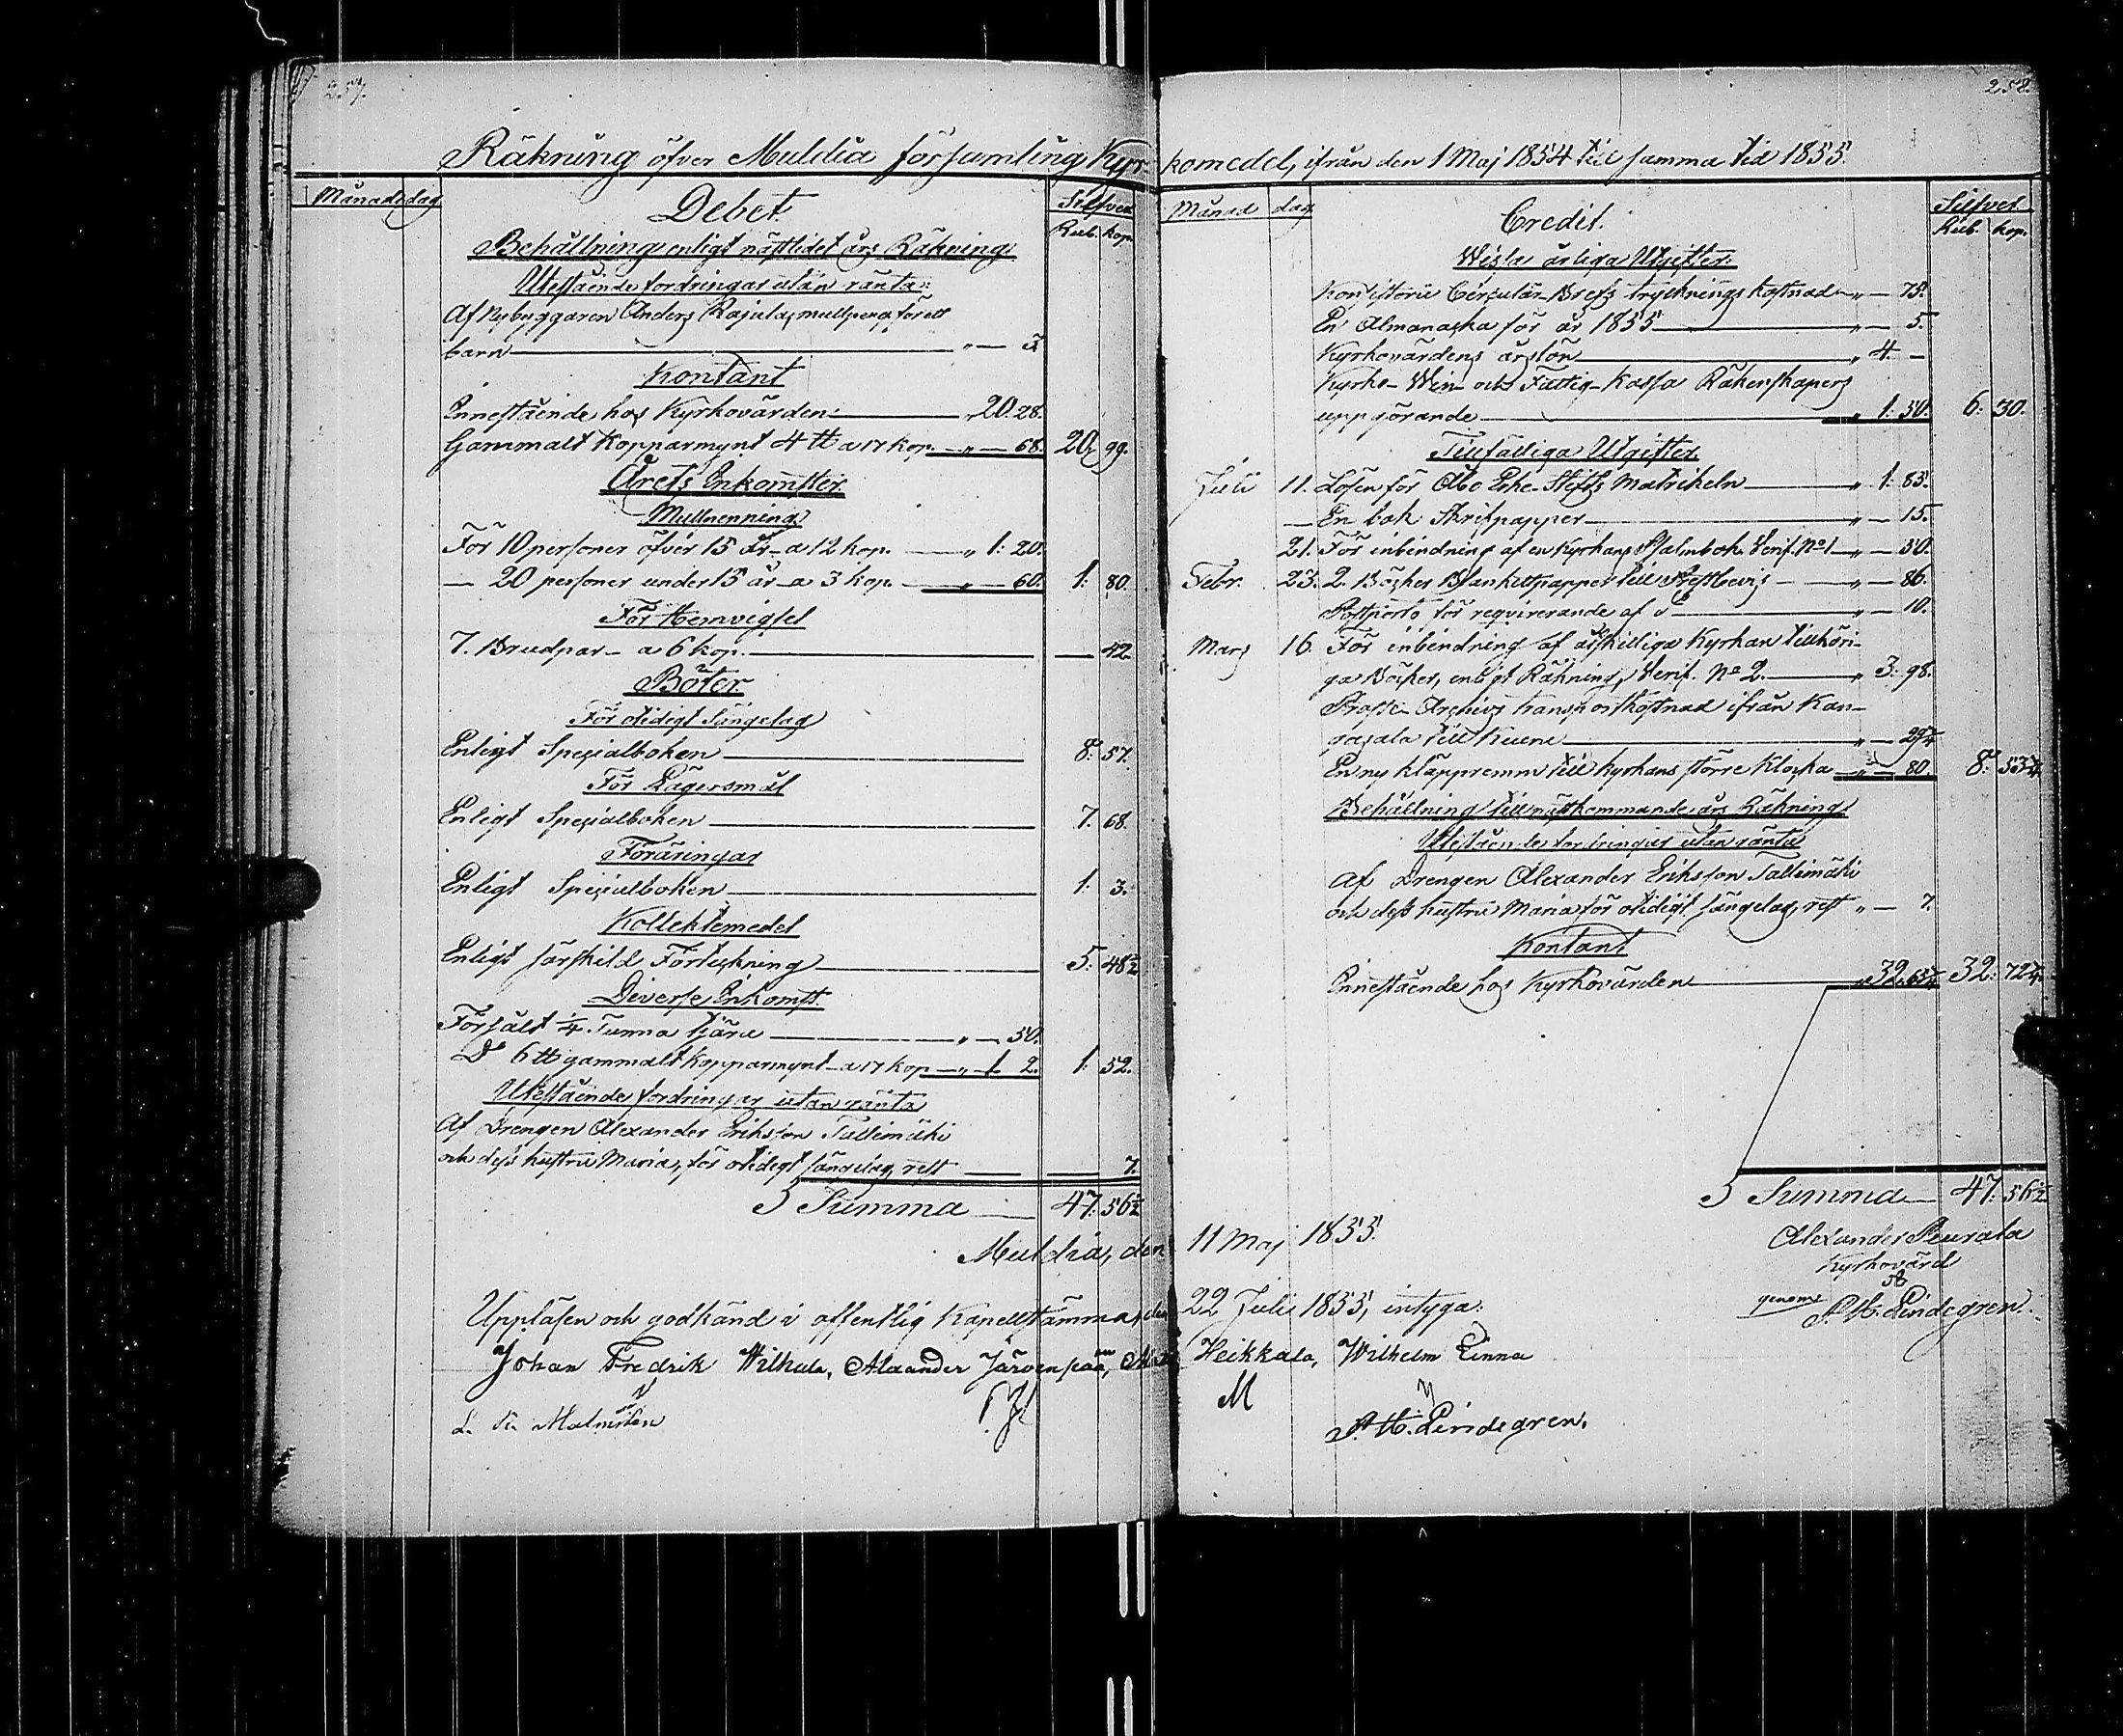 257.
Räkning öfver Muldia församling Kyr-
Månad dag
Debet.
Silfver
Rub. kop.
Behållning enligt nästlidet års Räkning.
Utestående fordringar utan ränta:
Af Nybyggaren Anders Rajula, mullpeng. för ett
barn " — 3
Kontant
Innestående hos Kyrkovärden " 20. 28.
Gammalt Kopparmynt 4 ℔ a 17 kop. " — 68. 20. 99.
Årets Inkomster.
Mullpenning
För 10 personer öfver 15 år a 12 kop. " 1: 20.
— 20 personer under 15 år a 3 kop. " — 60. 1: 80.
För Hemvigsel
7. Brudpar a 6 kop. — 42
Böter.
För otidigt Sängelag
Enligt Specialboken 8: 57.
För Lägersmål
Enligt Specialboken 7. 68.
Föräringar
Enligt Specialboken 1: 3.
Kollektemedel
Enligt särskild Förteckning 5: 48½
Diverse Inkomst.
Försålt ¼ Tunna tjära " — 50.
D° 6 ℔ gammalt Kopparmynt a 17 kop " 1 2. 1: 52.
Utestående fordringar utan ränta
Af Drengen Alexander Eriksson Tallimäki
och dess hustru Maria, för otidigt sängelag, rest — 7.
Summa 47: 56½
Muldia, den
Uppläsen och godkänd i offentlig Kapellstämma, den
Johan Fredrik Wilkula, Alexander Järvenpää,
Malmstén
258.
komedel, ifrån den 1 Maj 1854 till samma tid 1855.
Månad dag
Credit.
Silfver
Rub. kop.
Wissa årliga Utgifter.
Konsistorii Circulär-Brefs tryckningskostnad " — 75.
En Almanacka för år 1855 " — 5.
Kyrkovärdens årslön " 4. —
Kyrko- Win- och Fattig-Kassa Räkenskapers
uppgörande " 1: 50. 6: 30.
Tillfälliga Utgifter.
Juli 11. Lösen för Åbo Erke-Stifts Matrikeln " 1: 85.
— En bok Skrifpapper " — 15.
21. För inbindning af en Kyrkans Psalmbok. Verif. N° 1 " — 50.
Febr. 23. 2. Böcker Blankettpapper till Prestbevis " — 86.
Postporto för requirerande af d° " — 10.
Mars 16. För inbindning af åtskilliga Kyrkan tillhöri-
ga Böcker, enligt Räkning, Verif. N° 2. " 3: 98.
transportkostnad ifrån Kan-
gasala till Kuru " — 29¼
En ny kläppremm till Kyrkans större Klocka " — 80. 8: 53¼
Behållning till nästkommande års Räkning.
Utestående fordringar utan ränta
Af Drengen Alexander Eriksson Tallimäki
och dess hustru Maria för otidigt sängelag, rest " — 7.
Kontant
Innestående hos Kyrkovärden " 32. 65¼ 32: 72¼
Summa 47: 56½
11 Maj 1855.
Alexander Peurala
Kyrkovärd
genom
Lindegren.
22 Juli 1855, intyga:
Heikkala, Wilhelm Linna
M
Lindegren.